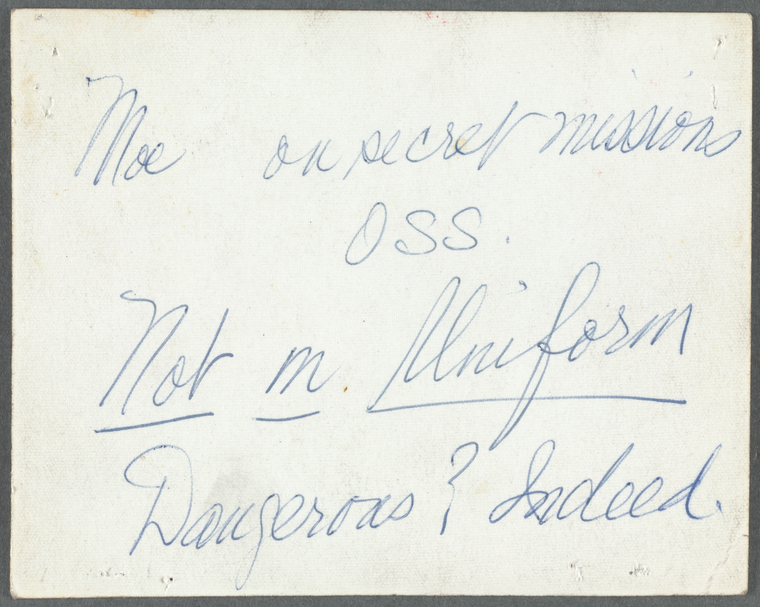 Moe on secret missions
OSS.
Not in Uniform
Dangerous? Indeed.